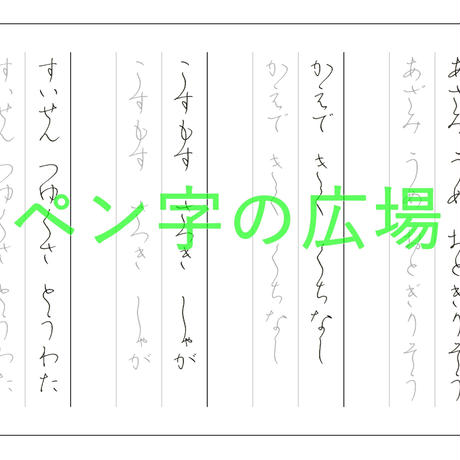 あざみ うめ おとぎりそう
あざみ うめ おとぎりそう
かえで きく くちなし
かえで きく くちなし
こすもす さつき しゃが
こすもす さつき しゃが
すいせん つゆくさ とうわた
すいせん つゆくさ とうわた
ペン字の広場